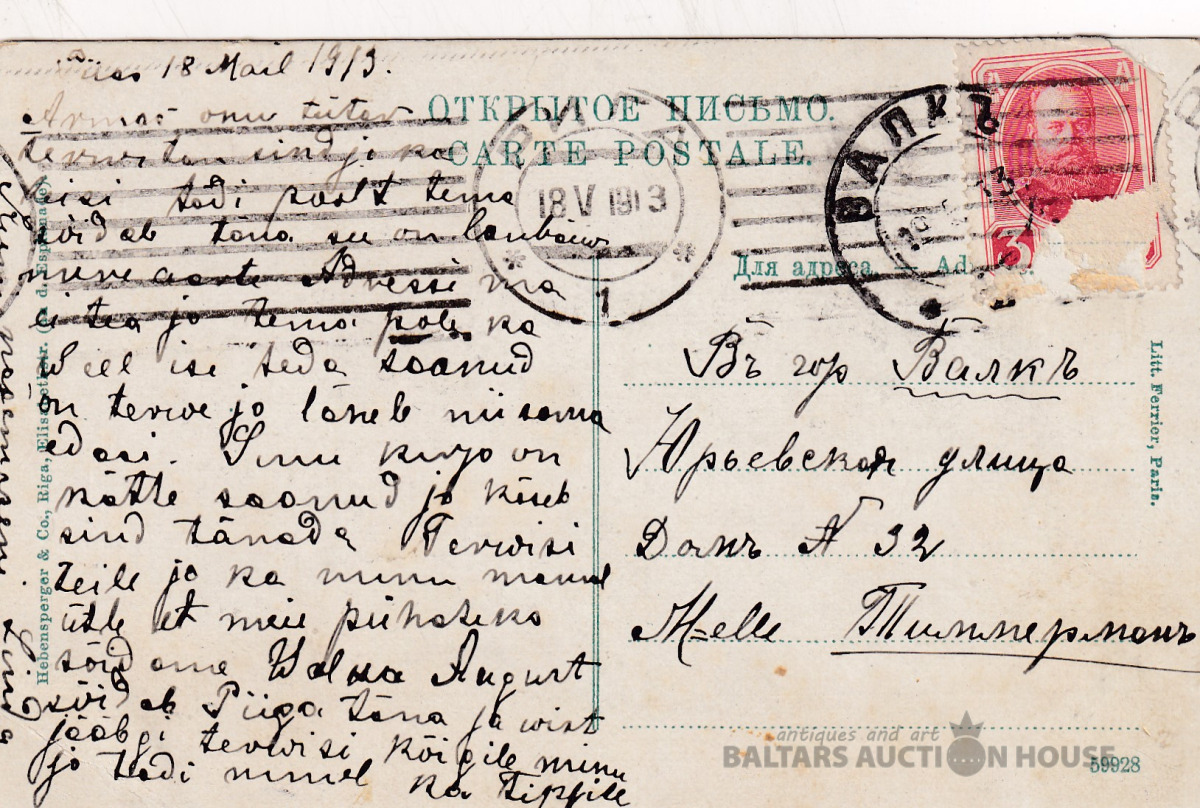 18 Mail 1913.
Armas onu tütar
terwitan sind ja ka
tädi poolt tema
sõidab täna su on laubaew
uue aasta Adressi ma
ei tea ja tema pole ka
weel ise seda saanud
on terwe ja läheb niisama
edasi. Sinu kirja on
kätte saanud ja käseb
sind tänada Terwisi
teile ja ka minu
ütle et meie pühateks
sõidame Walka August
sõidab Riiga täna ja wist
jääbgi terwisi kõigile minu
ja tädi nimel ka
ОТКРЫТОЕ ПИСЬМО.
CARTE POSTALE.
Для адреса. — Adresse.
18 V 1913
1
ВАЛКЪ
3
Въ гор Валкъ
Юрьевская улица
Домъ № 32
M-elle Тиммерманъ
Hebensperger & Co., Riga, Elisabethstr.
Litt. Ferrier, Paris.
59928
antiques and art
BALTARS AUCTION HOUSE